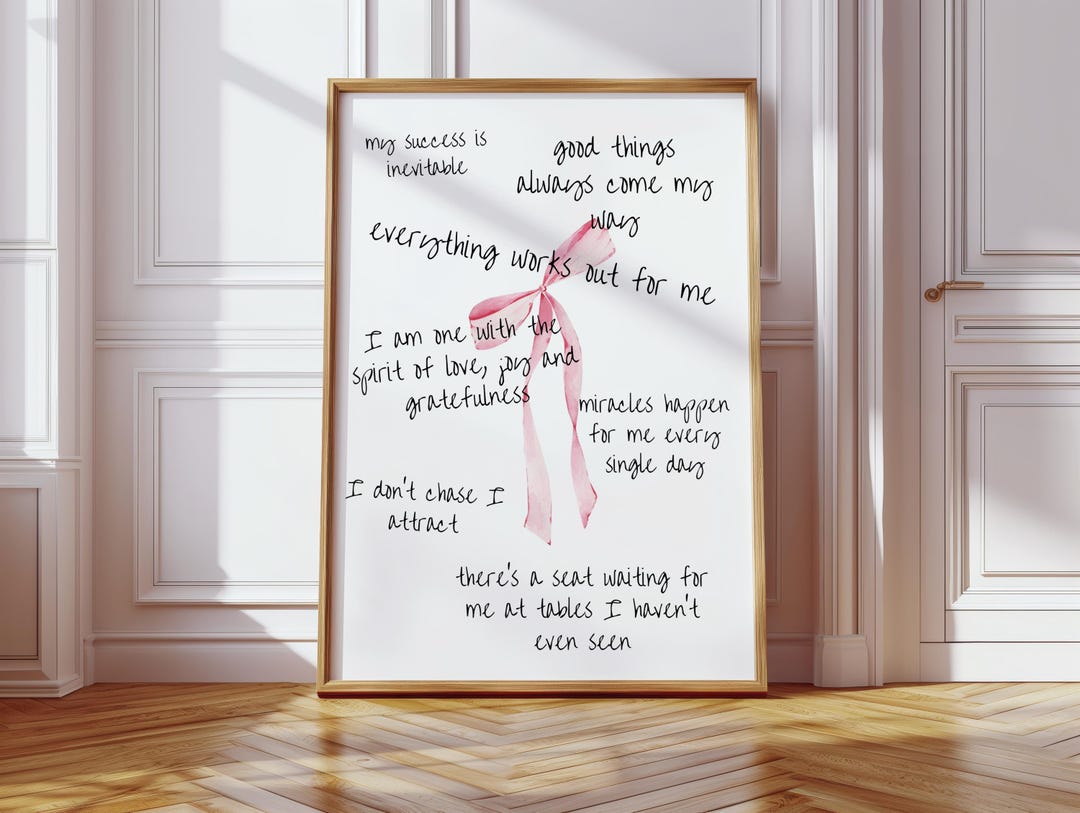 my success is
inevitable
good things
always come my
way
everything works out for me
I am one with the
spirit of love, joy and
gratefulness
miracles happen
for me every
single day
I don't chase I
attract
there's a seat waiting for
me at tables I haven't
even seen